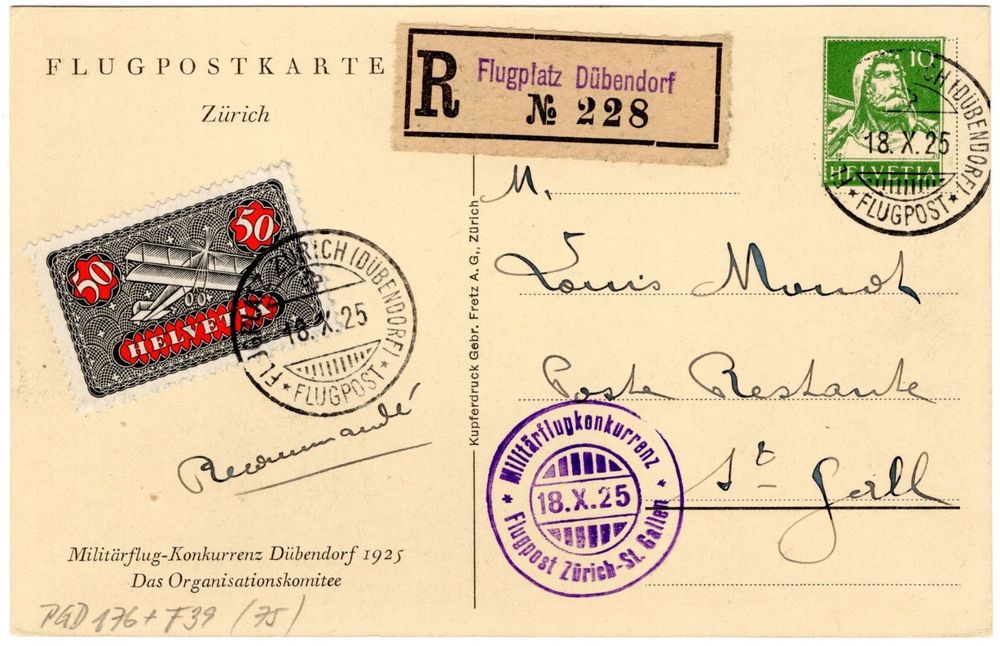 FLUGPOSTKARTE
Zürich
R
Flugplatz Dübendorf
№ 228
10
HELVETIA
ZÜRICH (DÜBENDORF)
18.X.25
* FLUGPOST *
50
50
HELVETIA
FLUGPLATZ ZÜRICH (DÜBENDORF)
18.X.25
* FLUGPOST *
Recommandé
M.
Louis
Poste Restante
St Gall
Kupferdruck Gebr. Fretz A.G., Zürich
* Militärflugkonkurrenz *
18.X.25
Flugpost Zürich-St. Gallen
Militärflug-Konkurrenz Dübendorf 1925
Das Organisationskomitee
PGD 176 + F39 (75)